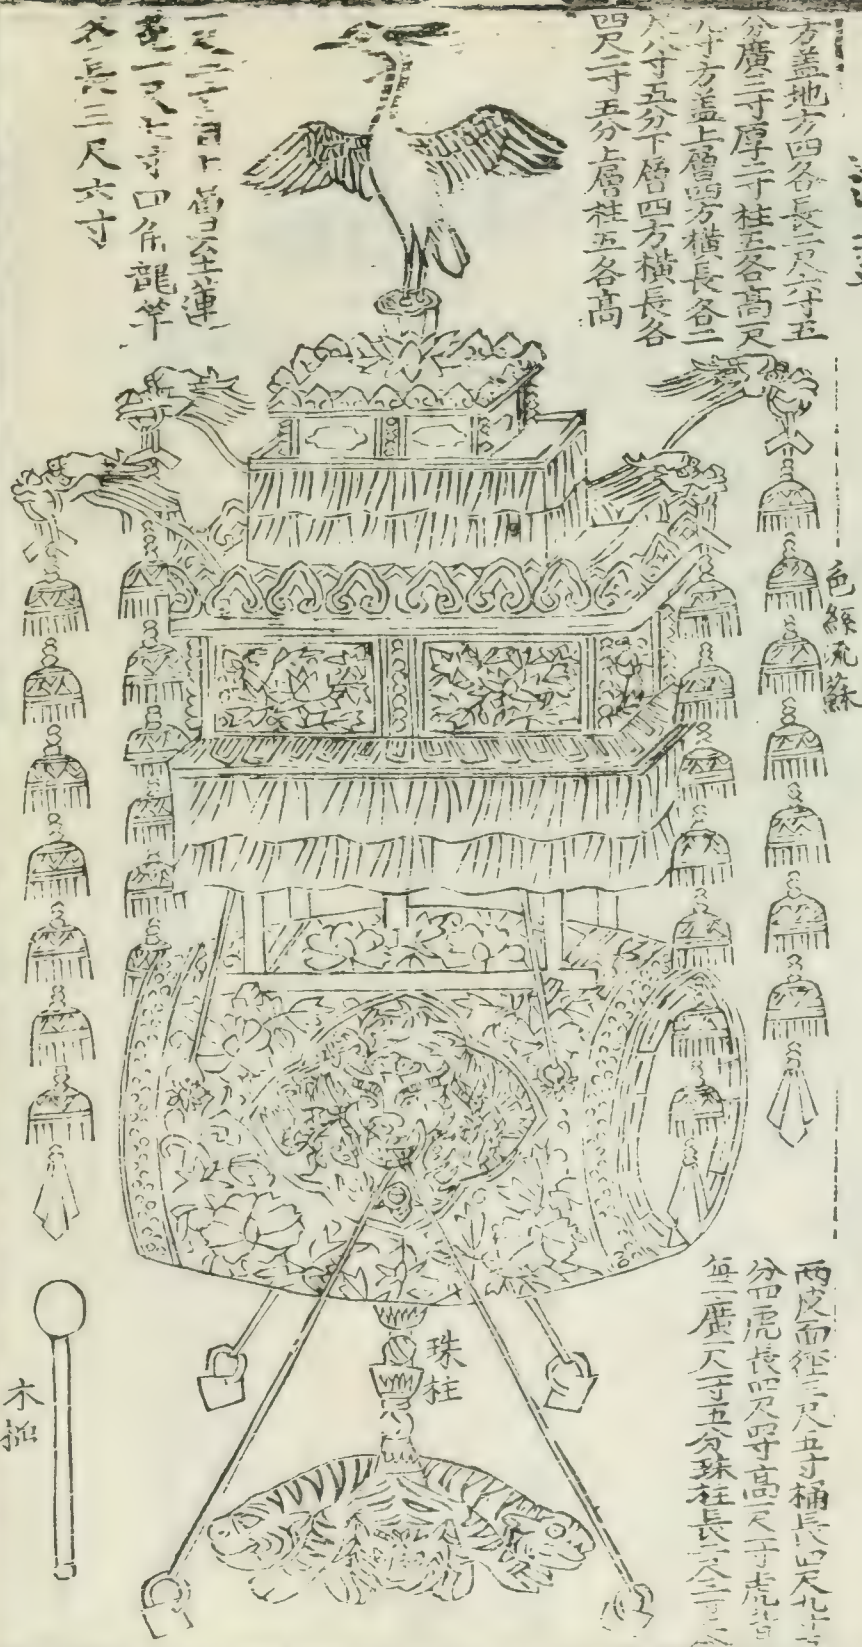 方盖地方四各長二尺六寸五
分廣三寸厚二寸柱五各高一尺
寸方盖上層四方橫長各二
尺八寸五分下層四方橫長各
四尺二寸五分上層柱五各高
一尺二寸
蓮
一尺七寸四角龍竿
各長三尺六寸
色絲流蘇
兩皮面徑三尺五寸桶長四尺九寸
分四虎長四尺四寸高一尺一寸虎
廣一尺一寸五分珠柱長二尺三寸
珠柱
木